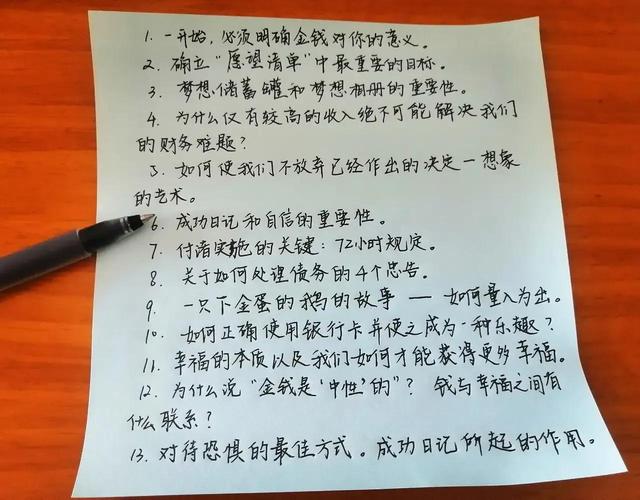 1. 一开始，必须明确金钱对你的意义。
2. 确立"愿望清单"中最重要的目标。
3. 梦想储蓄罐和梦想相册的重要性。
4. 为什么仅有较高的收入绝不可能解决我们
的财务难题？
5. 如何使我们不放弃已经作出的决定—想象
的艺术。
6. 成功日记和自信的重要性。
7. 付诸实施的关键：72小时规定。
8. 关于如何处理债务的4个忠告。
9. 一只下金蛋的鹅的故事 — 如何量入为出。
10. 如何正确使用银行卡并使之成为一种乐趣？
11. 幸福的本质以及我们如何才能获得更多幸福。
12. 为什么说"金钱是'中性'的"？ 钱与幸福之间有
什么联系？
13. 对待恐惧的最佳方式。成功日记所起的作用。